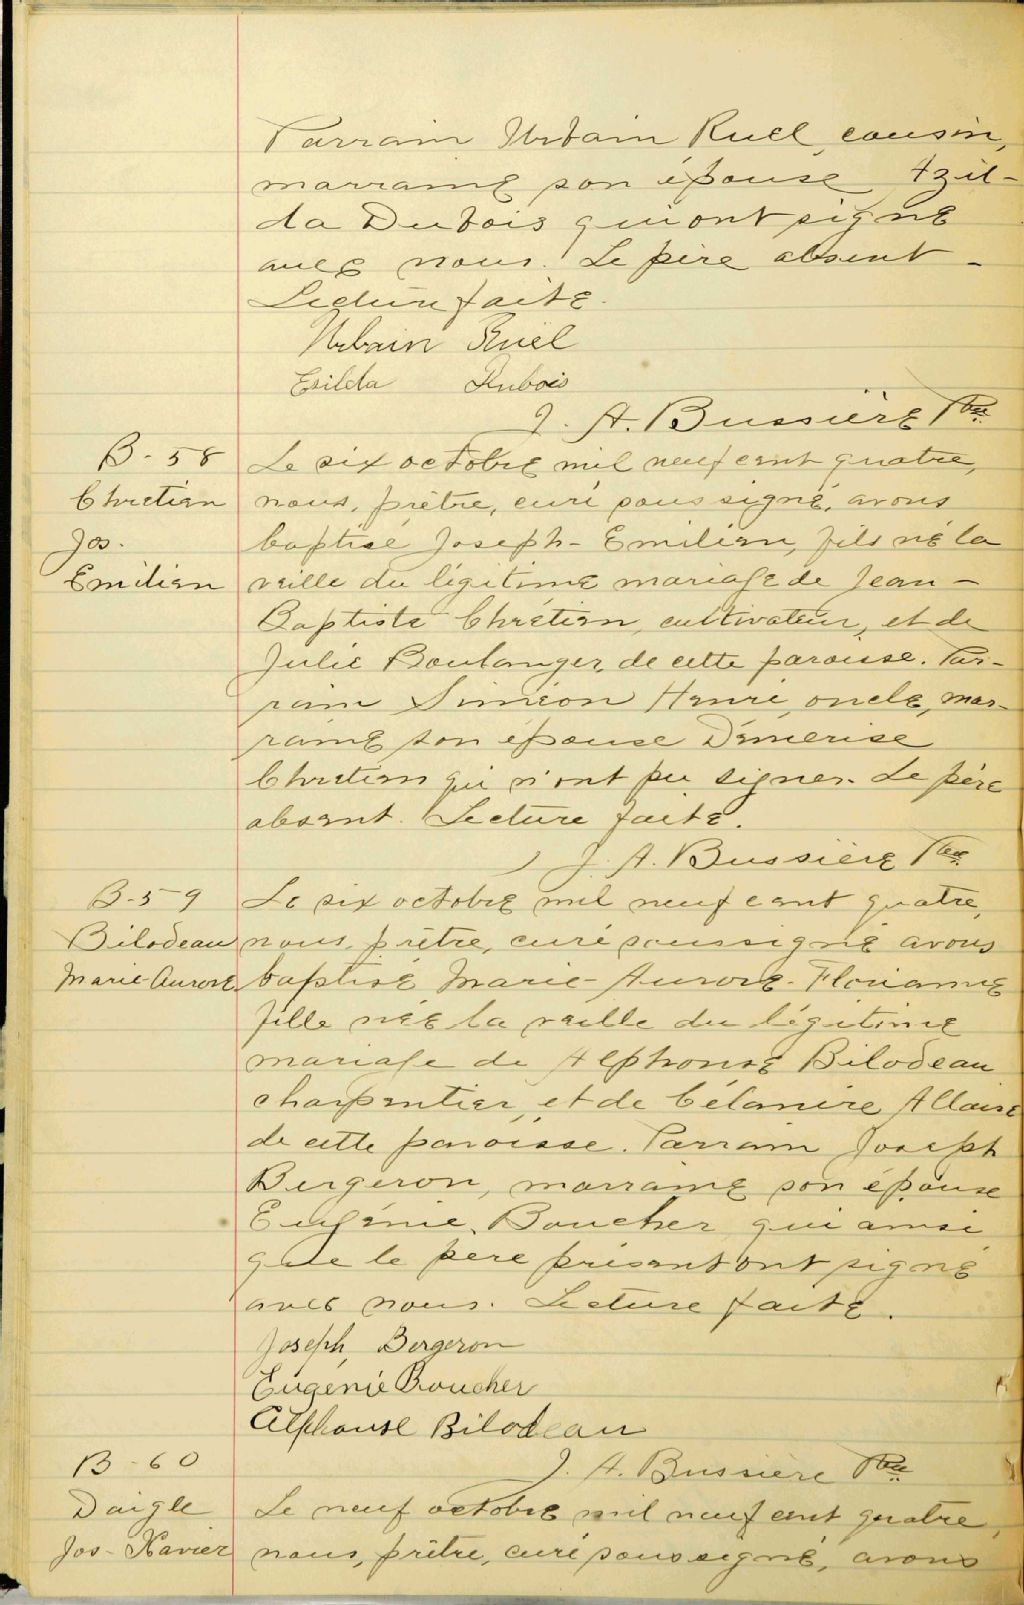 Parrain Urbain Ruel, cousin,
marraine son épouse Azil-
da Dubois qui ont signé
avec nous. Le père absent -
Lecture faite.
Urbain Ruël
Exilda Dubois
J. A. Bussière Ptre
B-58
Chretien
Jos.
Emilien
Le six octobre mil neuf cent quatre,
nous, prêtre, curé soussigné, avons
baptisé Joseph-Emilien, fils né la
veille du légitime mariage de Jean-
Baptiste Chrétien, cultivateur, et de
Julie Boulanger, de cette paroisse. Par-
rain Siméon Henri, oncle, mar-
raine son épouse Démerise
Chretien qui n'ont pu signer. Le père
absent. Lecture faite.
J. A. Bussière Ptre
B-59
Bilodeau
Marie-Aurore
Le six octobre mil neuf cent quatre,
nous, prêtre, curé soussigné avons
baptisé Marie-Aurore-Florianne
fille née la veille du légitime
mariage de Alphonse Bilodeau
charpentier, et de Célanire Allaire
de cette paroisse. Parrain Joseph
Bergeron, marraine son épouse
Eugénie Boucher qui ainsi
que le père présent ont signé
avec nous. Lecture faite.
Joseph Bergeron
Eugénie Boucher
Alphonse Bilodeau
J. A. Bussière Ptre
B-60
Daigle
Jos-Xavier
Le neuf octobre mil neuf cent quatre,
nous, prêtre, curé soussigné, avons